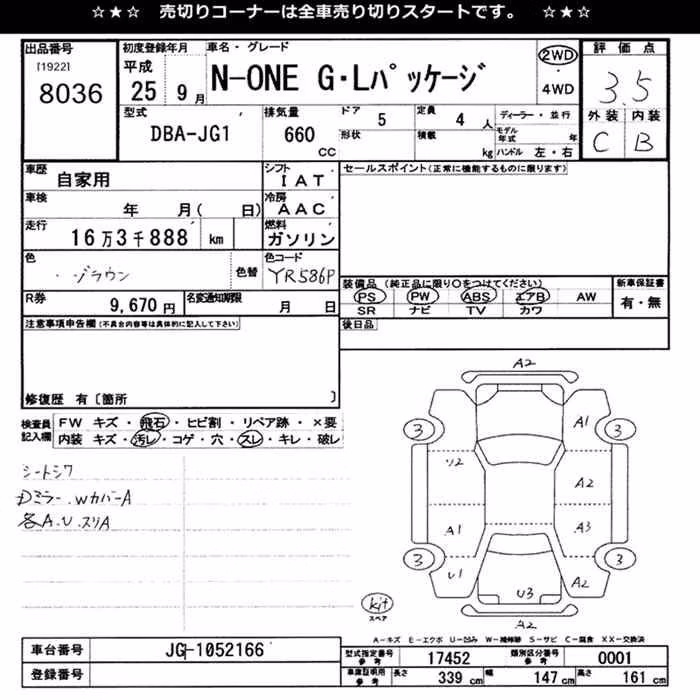 ☆★☆ 売切りコーナーは全車売り切りスタートです。 ☆★☆
出品番号
[1922]
8036
初度登録年月
平成
25 9月
車名・グレード
N-ONE G・Lパッケージ
2WD
・
4WD
評価点
3.5
外装 内装
C B
型式
DBA-JG1
排気量
660
CC
ドア
5
定員
4人
形状
積載
kg
ディーラー・並行
モデル年式 年
ハンドル 左・右
車歴
自家用
シフト
IAT
車検
年 月( 日)
冷房
AAC
走行
16万3千888 km
燃料
ガソリン
色
ブラウン
色替
色コード
YR586P
R券
9,670円
名変通知期限
月 日
セールスポイント(正常に機能するものに限ります)
装備品(純正品に限り○をつけてください)
PS PW ABS エアB AW
SR ナビ TV カワ
新車保証書
有・無
後日品
注意事項申告欄(不具合内容等は具体的に記入して下さい)
修復歴 有〔箇所 〕
検査員
記入欄
FW キズ・飛石・ヒビ割・リペア跡・×要
内装 キズ・汚レ・コゲ・穴・スレ・キレ・破レ
シートシワ
Dミラー.WカバーA
各A.U.スリA
A2
A1
3
3
U2
A2
A1
A3
3
3
U1
A2
U3
A2
kit
スペア
A-キズ E-エクボ U-凹み W-補修跡 S-サビ C-腐食 XX-交換済
車台番号
JG1-1052166
登録番号
型式指定番号
参考
17452
類別区分番号
参考
0001
車庫証明用
参考
長さ
339 cm
幅
147 cm
高さ
161 cm